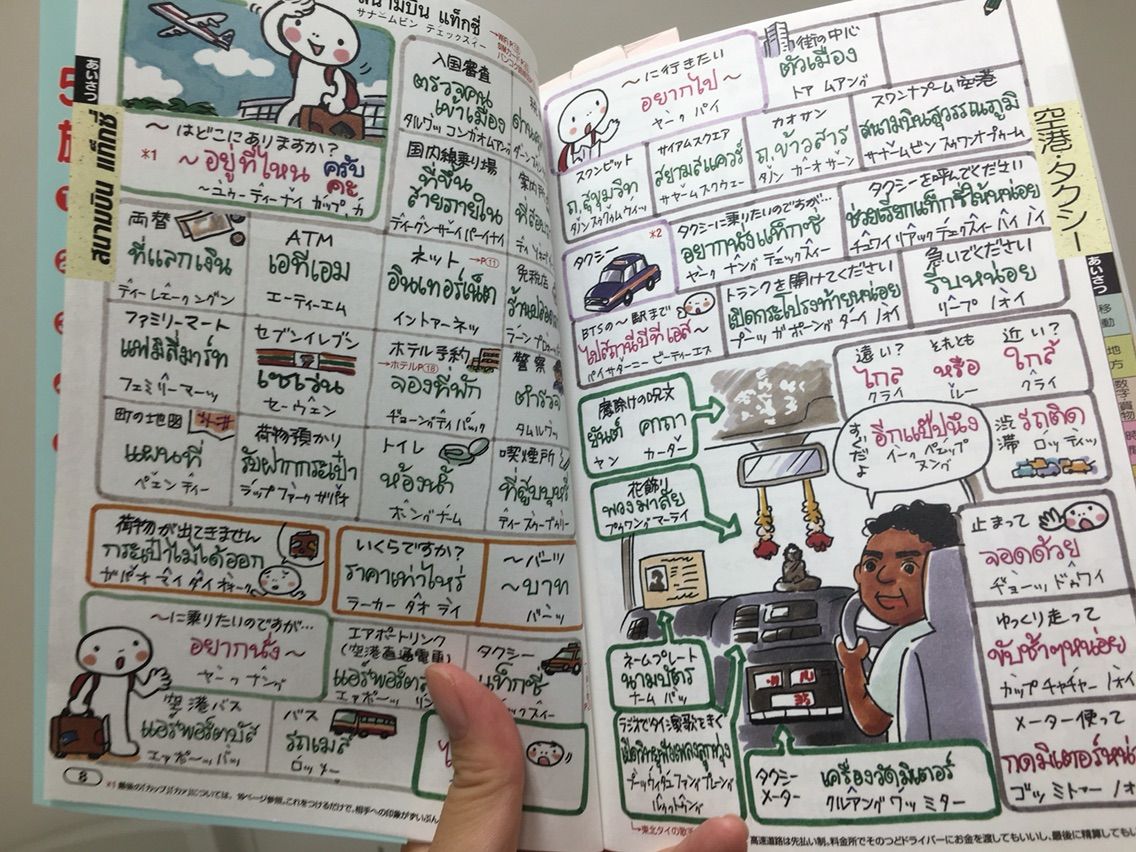 สนามบิน แท็กซี่
サナームビン テェックスィー
あいさつ
สนามบิน แท็กซี่
~はどこにありますか?
*1
~อยู่ที่ไหน ครับ คะ
~ユゥーティーナイ カップ, カ
入国審査
ตรวจคนเข้าเมือง
国内線乗り場
ที่ขึ้นสายภายใน
両替
ที่แลกเงิน
ティーレェーク ングン
ATM
เอทีเอม
エーティーエム
ネット
→P⑪
อินเทอร์เน็ต
イントァーネッ
免税店
ファミリーマート
แฟมิลี่มาร์ท
フェミリーマーッ
セブンイレブン
เซเว่น
セーウェン
ホテル予約
→ホテルP⑱
จองที่พัก
ヂョーンヶティ パック
警察
ตำรวจ
タムルワッ
町の地図
แผนที่
ペェンティー
荷物預かり
รับฝากกระเป๋า
ラップファーク ガバオ
トイレ
ห้องน้ำ
ホンヶナーム
喫煙所
ที่สูบบุหรี่
荷物が出てきません
กระเป๋าไม่ได้ออก
ガバオ マイ ダイ オォーク
いくらですか?
ราคาเท่าไหร่
ラーカー タオ ライ
~バーツ
~บาท
バーッ
~に乗りたいのですが…
อยากนั่ง~
ヤーク ナンヶ
エアポートリンク
(空港直通電車)
タクシー
แท็กซี่
空港バス
แอร์พอร์ตบัส
エァポーッバッ
バス
รถเมล์
ロッメー
8
*1 最後の「カップ」「カァ」については、16ページ参照。これをつけるだけで、相手への印象がずいぶん
~に行きたい
อยากไป~
ヤーク パイ
街の中心
ตัวเมือง
トァ ムアンヶ
スクンビット
ถ.สุขุมวิท
サイアムスクエア
สยามสแควร์
サヤームスクウェー
カオサン
ถ.ข้าวสาร
タノン カーオ サーン
スワンナプーム空港
สนามบินสุวรรณภูมิ
サナームビン スゥワンナプゥーム
空港・タクシー
タクシー
*2
タクシーに乗りたいのですが…
อยากนั่งแท็กซี่
ヤーク ナンヶ テェックスィー
タクシーを呼んでください
ช่วยเรียกแท็กซี่ให้หน่อย
BTSの~駅まで
ไปสถานีบีทีเอส~
パイ サターニー ビーティーエス
トランクを開けてください
เปิดกระโปรงท้ายหน่อย
急いでください
รีบหน่อย
リープ ノォイ
あいさつ
移動
地方
遠い?
ไกล
クライ
それとも
หรือ
ルー
近い?
ใกล้
クライ
魔除けの呪文
ยันต์ คาถา
ヤン カーター
すぐだよ
อีกแป๊ปนึง
イーク ペェップ ヌンヶ
渋滞
รถติด
ロッティッ
花飾り
พวงมาลัย
プゥワンヶマーライ
止まって
จอดด้วย
ヂョーッ ドゥワイ
ゆっくり走って
ขับช้าๆหน่อย
カップ チャチャー ノォイ
ネームプレート
นามบัตร
ナーム バッ
ラジオでタイ演歌をきく
メーター使って
กดมิเตอร์หน่
ゴッ ミトァー ノォイ
タクシーメーター
เครื่องวัดมิเตอร์
クルアンヶ ワッ ミター
→東北タイの歌手
高速道路は先払い制。料金所でそのつどドライバーにお金を渡してもいいし、最後に精算しても